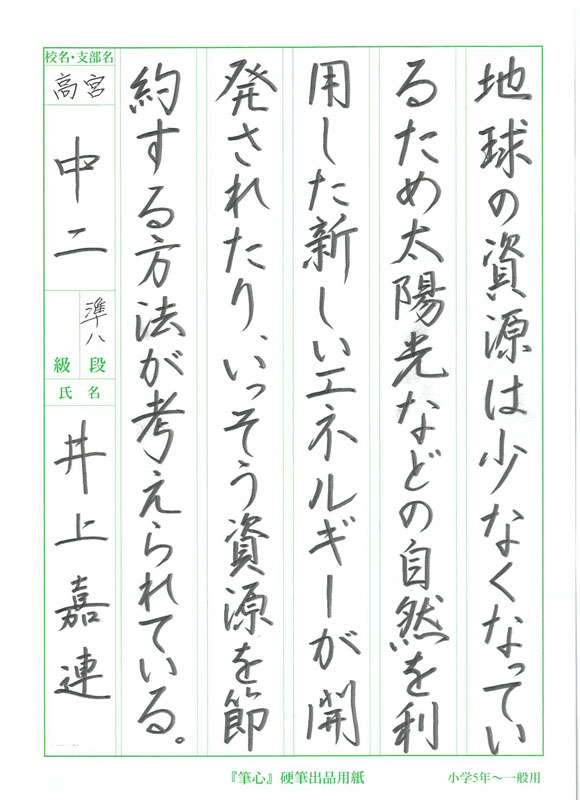 地球の資源は少なくなってい
るため太陽光などの自然を利
用した新しいエネルギーが開
発されたり、いっそう資源を節
約する方法が考えられている。
校名・支部名
高宮
中二
準八
級 段
氏 名
井上嘉連
『筆心』硬筆出品用紙
小学5年～一般用